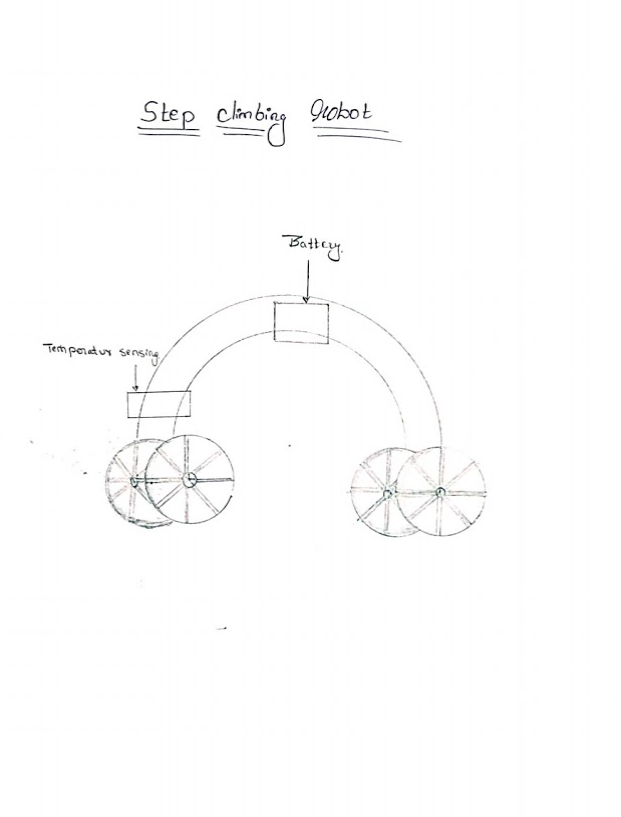 Step climbing robot
Battery.
Temperatur sensing